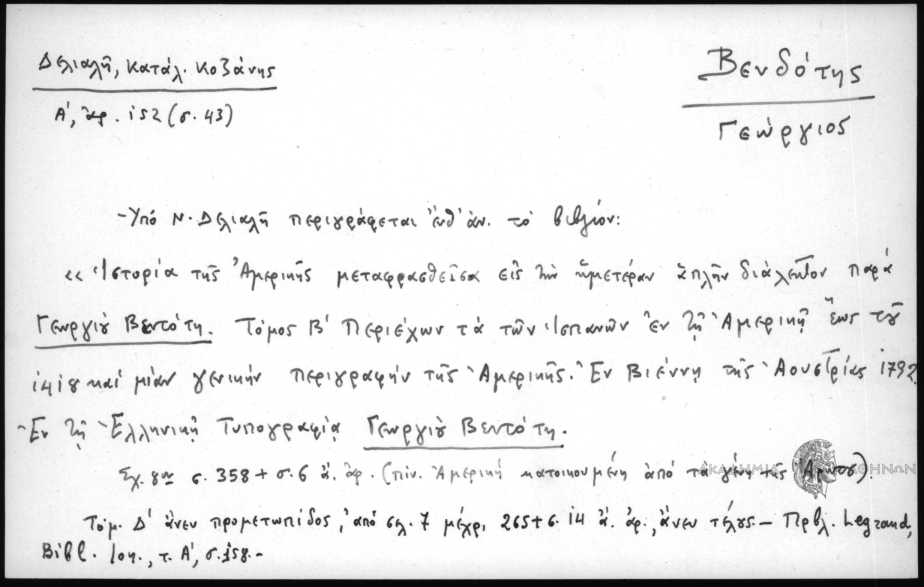 Δελιαλῆ, Κατάλ. Κοζάνης
Α', ἀρ. 152 (σ. 43)
Βενδότης
Γεώργιος
- Ὑπὸ Ν. Δελιαλῆ περιγράφεται ἔνθ' ἀν. τὸ βιβλίον:
«Ἱστορία τῆς Ἀμερικῆς μεταφρασθεῖσα εἰς τὴν ἡμετέραν ἁπλῆν διάλεκτον παρὰ
Γεωργίου Βεντότη. Τόμος Β' Περιέχων τὰ τῶν Ἱσπανῶν ἐν τῇ Ἀμερικῇ ἕως τοῦ
1418 καὶ μίαν γενικὴν περιγραφὴν τῆς Ἀμερικῆς. Ἐν Βιέννῃ τῆς Ἀουστρίας 1792
Ἐν τῇ Ἑλληνικῇ Τυπογραφίᾳ Γεωργίου Βεντότη.
Σχ. 8ον σ. 358 + σ. 6 ἄ. ἀρ. (πίν. Ἀμερικὴ κατοικουμένη ἀπὸ τὰ γένη τῆς).
ΑΚΑΔΗΜΙΑ ΑΘΗΝΩΝ
Τόμ. Δ' ἄνευ προμετωπίδος, ἀπὸ σελ. 7 μέχρι 265 + σ. 14 ἄ. ἀρ., ἄνευ τέλους. - Πρβλ. Legrand,
Bibl. Ion., τ. Α', σ. 158. -